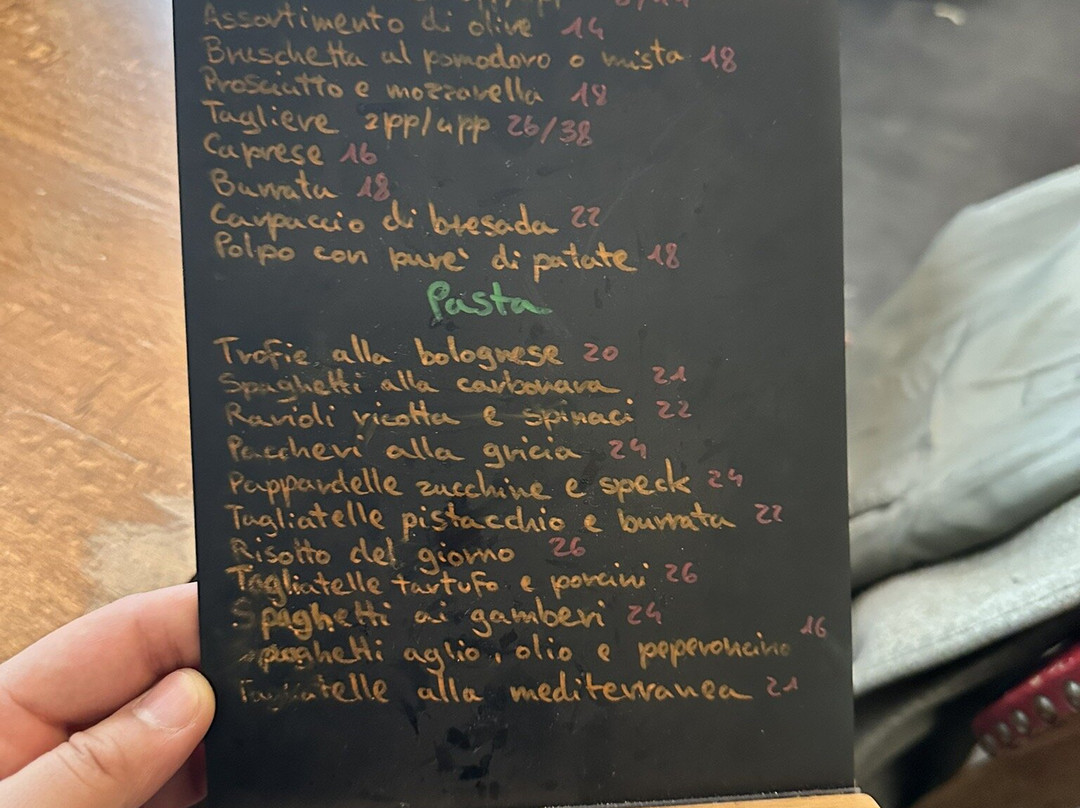 Assortimento di olive 14
Bruschetta al pomodoro o mista 18
Prosciutto e mozzarella 18
Tagliere 2pp/4pp 26/38
Caprese 16
Burrata 18
Carpaccio di bresada 22
Polpo con pure' di patate 18
Pasta
Trofie alla bolognese 20
Spaghetti alla carbonara 21
Ravioli ricotta e spinaci 22
Paccheri alla gricia 24
Pappardelle zucchine e speck 24
Tagliatelle pistacchio e burrata 22
Risotto del giorno 26
Tagliatelle tartufo e porcini 26
Spaghetti ai gamberi 24
Spaghetti aglio, olio e peperoncino 16
Tagliatelle alla mediterranea 21